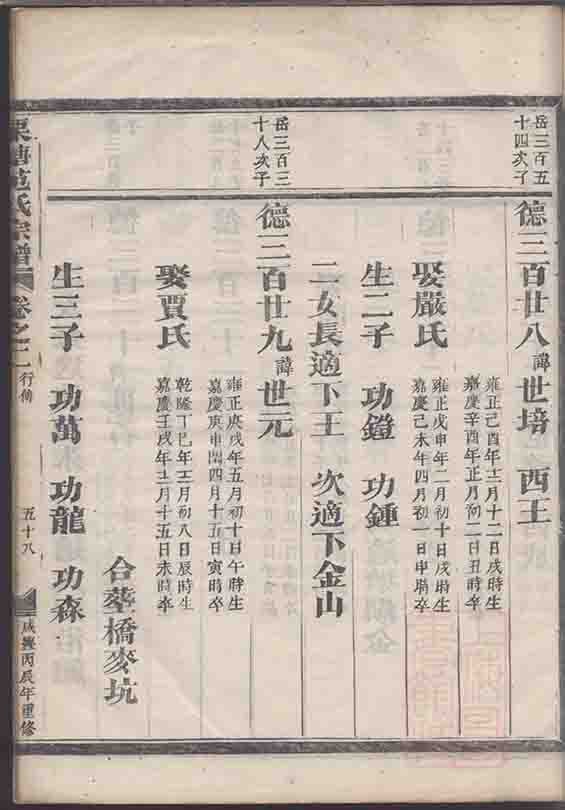 岳三百五
十四次子
德三百廿八諱世培 西王
雍正己酉年十二月十二日戌時生
嘉慶辛酉年正月初二日丑時卒
娶嚴氏
雍正戊申年二月初十日戌時生
嘉慶己未年四月初一日申時卒
生二子 功鐙 功鍾
二女長適下王 次適下金山
岳三百三
十八次子
德三百廿九諱世元
雍正庚戌年五月初十日午時生
嘉慶庚申閏四月十五日寅時卒
娶賈氏
乾隆丁巳年三月初八日辰時生
嘉慶壬戌年十二月十五日未時卒
合葬橋麥坑
生三子 功萬 功龍 功森
范氏宗譜 卷之二 行傳 五十八 咸豐丙辰年重修